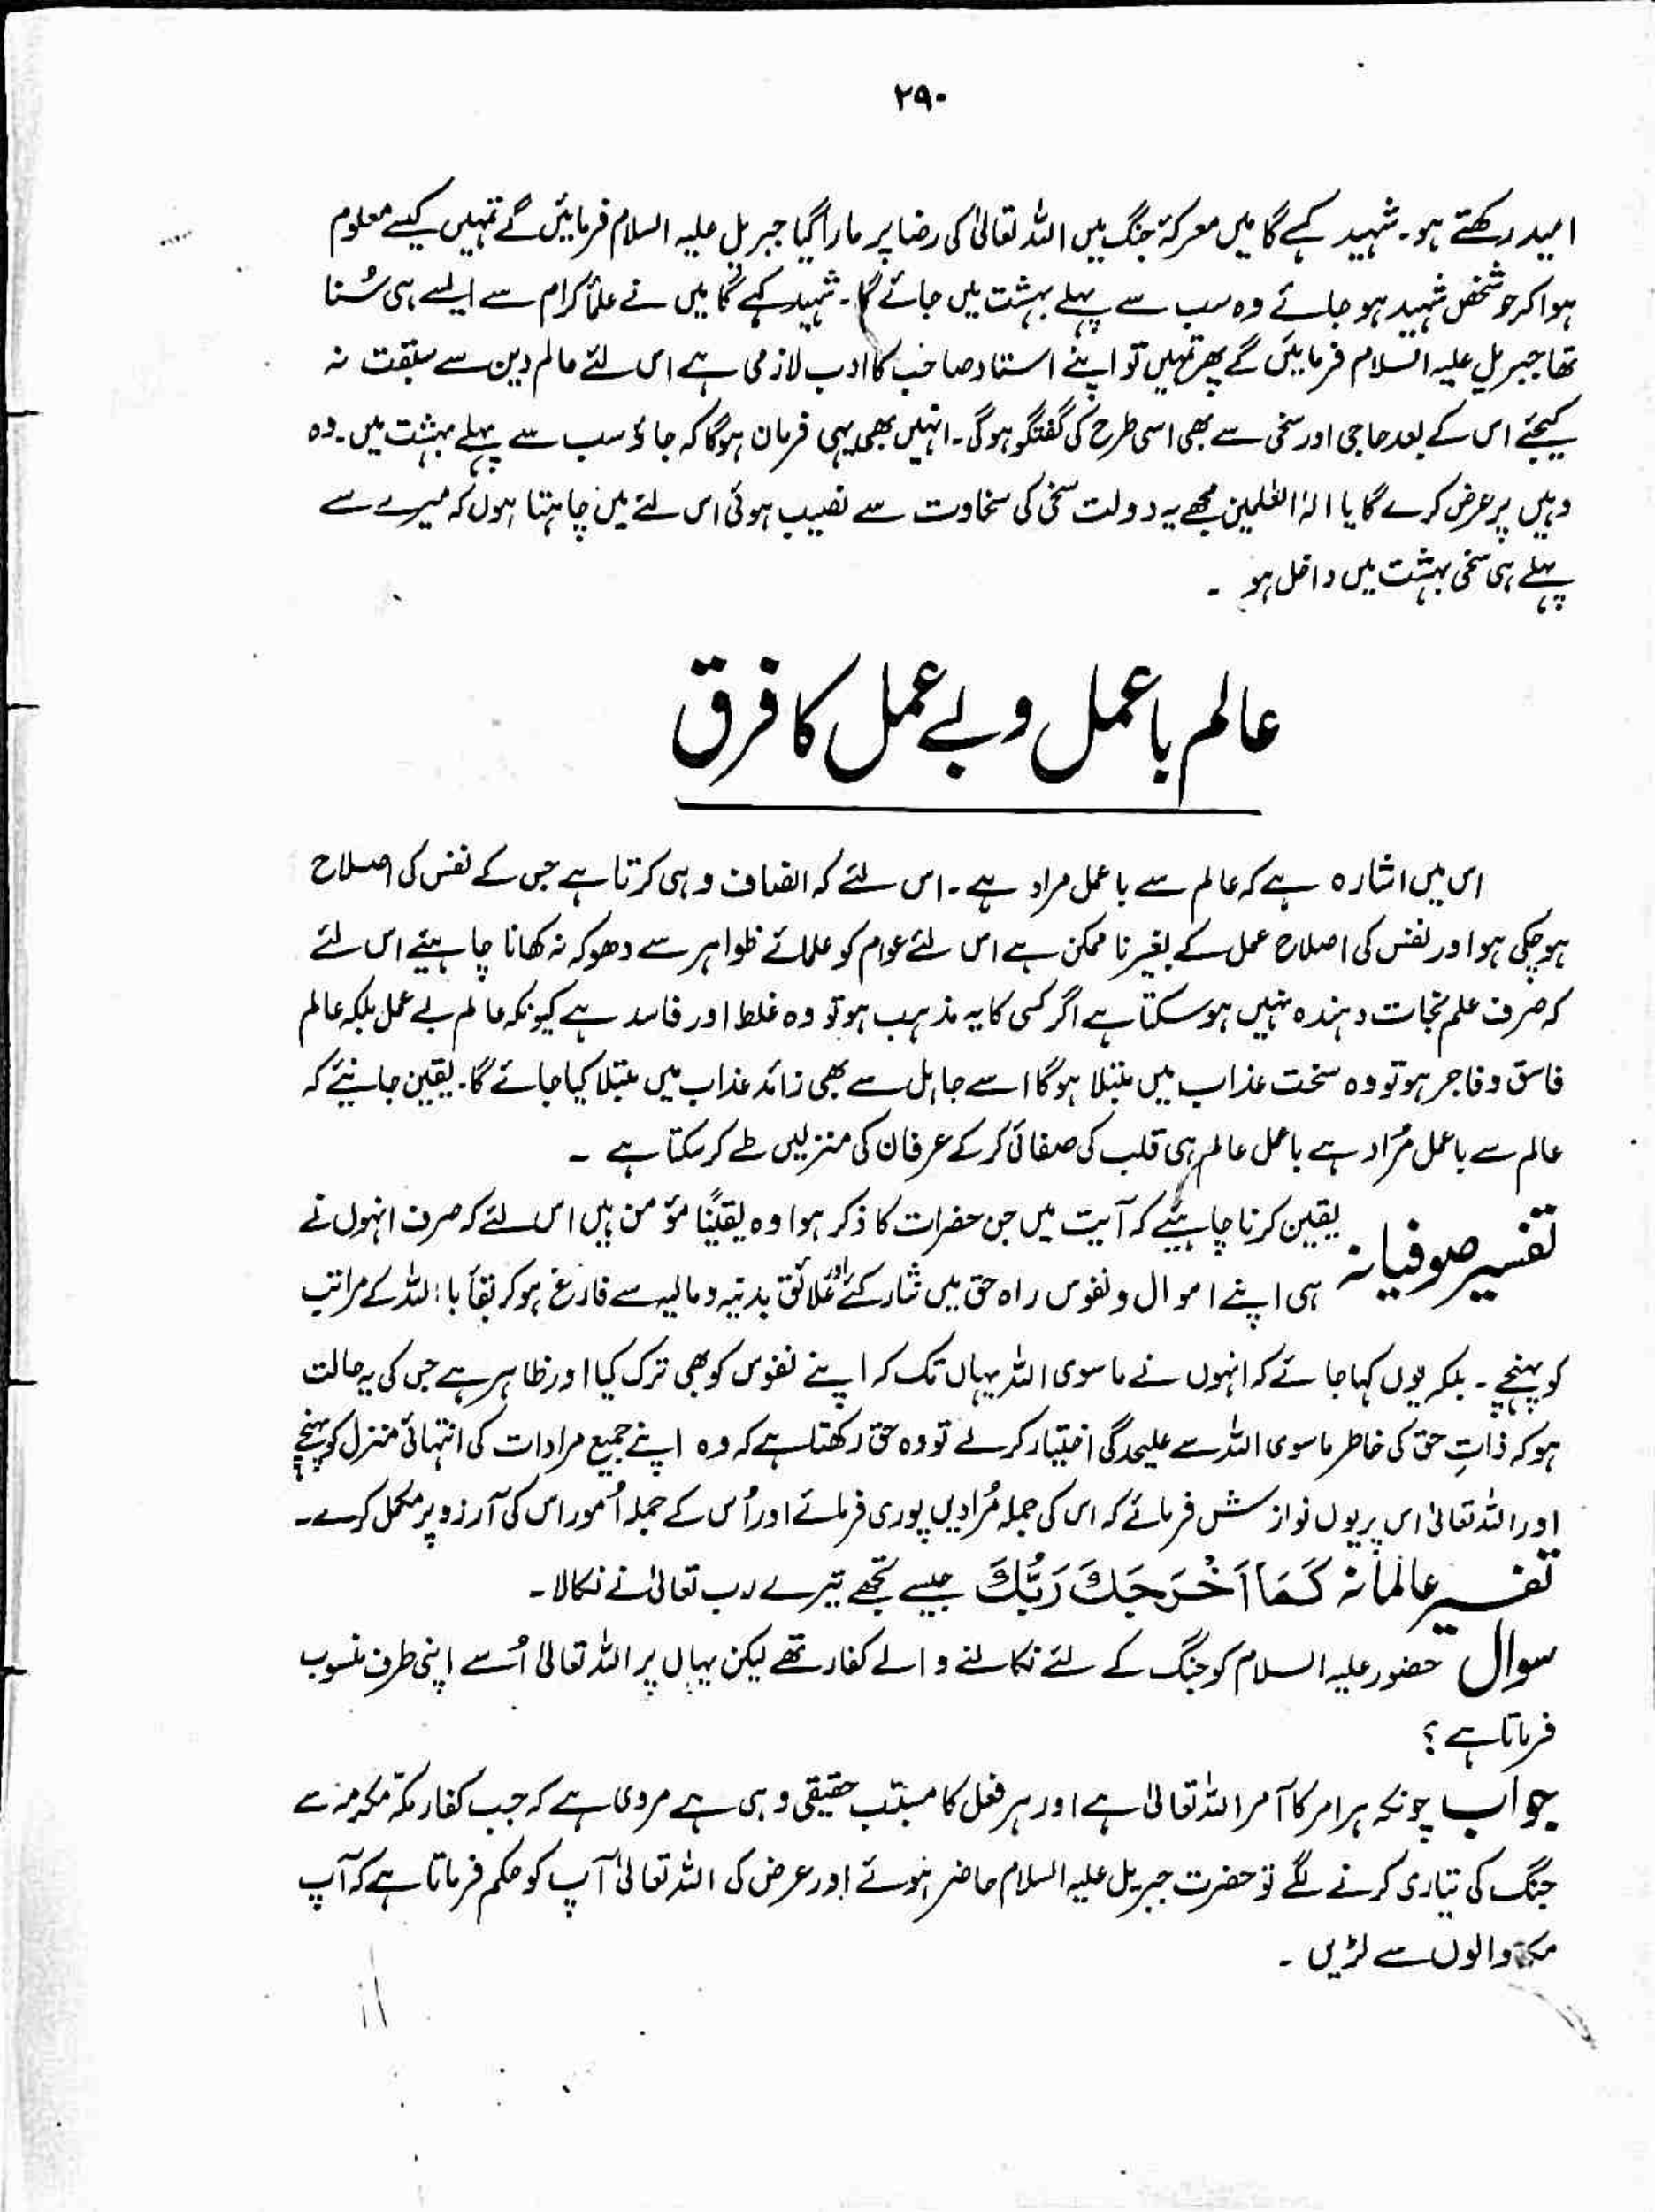 ۲۹۰
امید رکھتے ہو۔ شہید کہے گا میں معرکۂ جنگ میں اللہ تعالیٰ کی رضا پر مارا گیا جبریل علیہ السلام فرمائیں گے تمہیں کیسے معلوم
ہوا کہ جو شخص شہید ہو جائے وہ سب سے پہلے بہشت میں جائے گا۔ شہید کہے گا میں نے علماً کرام سے ایسے ہی سُنا
تھا جبریل علیہ السلام فرمائیں گے پھر تمہیں تو اپنے استاد صاحب کا ادب لازمی ہے اس لئے عالم دین سے سبقت نہ
کیجئے اس کے بعد حاجی اور سخی سے بھی اسی طرح کی گفتگو ہوگی۔ انہیں بھی یہی فرمان ہوگا کہ جاؤ سب سے پہلے بہشت میں۔ وہ
وہیں پر عرض کرے گا یا الٰہ العٰلمین مجھے یہ دولت سخی کی سخاوت سے نصیب ہوئی اس لئے میں چاہتا ہوں کہ میرے سے
پہلے ہی سخی بہشت میں داخل ہو ۔
عالم باعمل و بے عمل کا فرق
اس میں اشارہ ہے کہ عالم سے باعمل مراد ہے۔ اس لئے کہ انصاف وہی کرتا ہے جس کے نفس کی اصلاح
ہو چکی ہو اور نفس کی اصلاح عمل کے بغیر نا ممکن ہے اس لئے عوام کو علمائے ظواہر سے دھوکہ نہ کھانا چاہیئے اس لئے
کہ صرف علم نجات دہندہ نہیں ہوسکتا ہے اگر کسی کا یہ مذہب ہو تو وہ غلط اور فاسد ہے کیونکہ عالم بے عمل بلکہ عالم
فاسق و فاجر ہو تو وہ سخت عذاب میں مبتلا ہوگا اسے جاہل سے بھی زائد عذاب میں مبتلا کیا جائے گا۔ یقین جانیئے کہ
عالم سے باعمل مُراد ہے باعمل عالم ہی قلب کی صفائی کر کے عرفان کی منزلیں طے کر سکتا ہے ۔
تفسیر صوفیانہ یقین کرنا چاہیئے کہ آیت میں جن حضرات کا ذکر ہوا وہ یقینًا مؤمن ہیں اس لئے کہ صرف انہوں نے
ہی اپنے اموال و نفوس راہ حق میں نثار کئے اور علائق بدنیہ و مالیہ سے فارغ ہو کر بقأ باللہ کے مراتب
کو پہنچے ۔ بلکہ یوں کہا جائے کہ انہوں نے ماسوی اللہ یہاں تک کہ اپنے نفوس کو بھی ترک کیا اور ظاہر ہے جس کی یہ حالت
ہو کہ ذاتِ حق کی خاطر ماسوی اللہ سے علیحدگی اختیار کرلے تو وہ حق رکھتا ہے کہ وہ اپنے جمیع مرادات کی انتہائی منزل کو پہنچے
اور اللہ تعالیٰ اس پر یوں نوازشش فرمائے کہ اس کی جملہ مُرادیں پوری فرمائے اور اُس کے جملہ اُمور اس کی آرزو پر مکمل کرے۔
تفسیر عالمانہ كَمَا اَخْرَجَكَ رَبُّكَ جیسے تجھے تیرے رب تعالیٰ نے نکالا۔
سوال حضور علیہ السلام کو جنگ کے لئے نکالنے والے کفار تھے لیکن یہاں پر اللہ تعالیٰ اُسے اپنی طرف منسوب
فرماتا ہے ؟
جواب چونکہ ہر امر کا آمر اللہ تعالیٰ ہے اور ہر فعل کا مسبّب حقیقی وہی ہے مروی ہے کہ جب کفار مکّہ مکرمہ سے
جنگ کی تیاری کرنے لگے تو حضرت جبریل علیہ السلام حاضر ہوئے اور عرض کی اللہ تعالیٰ آپ کو حکم فرماتا ہے کہ آپ
مکہ والوں سے لڑیں ۔